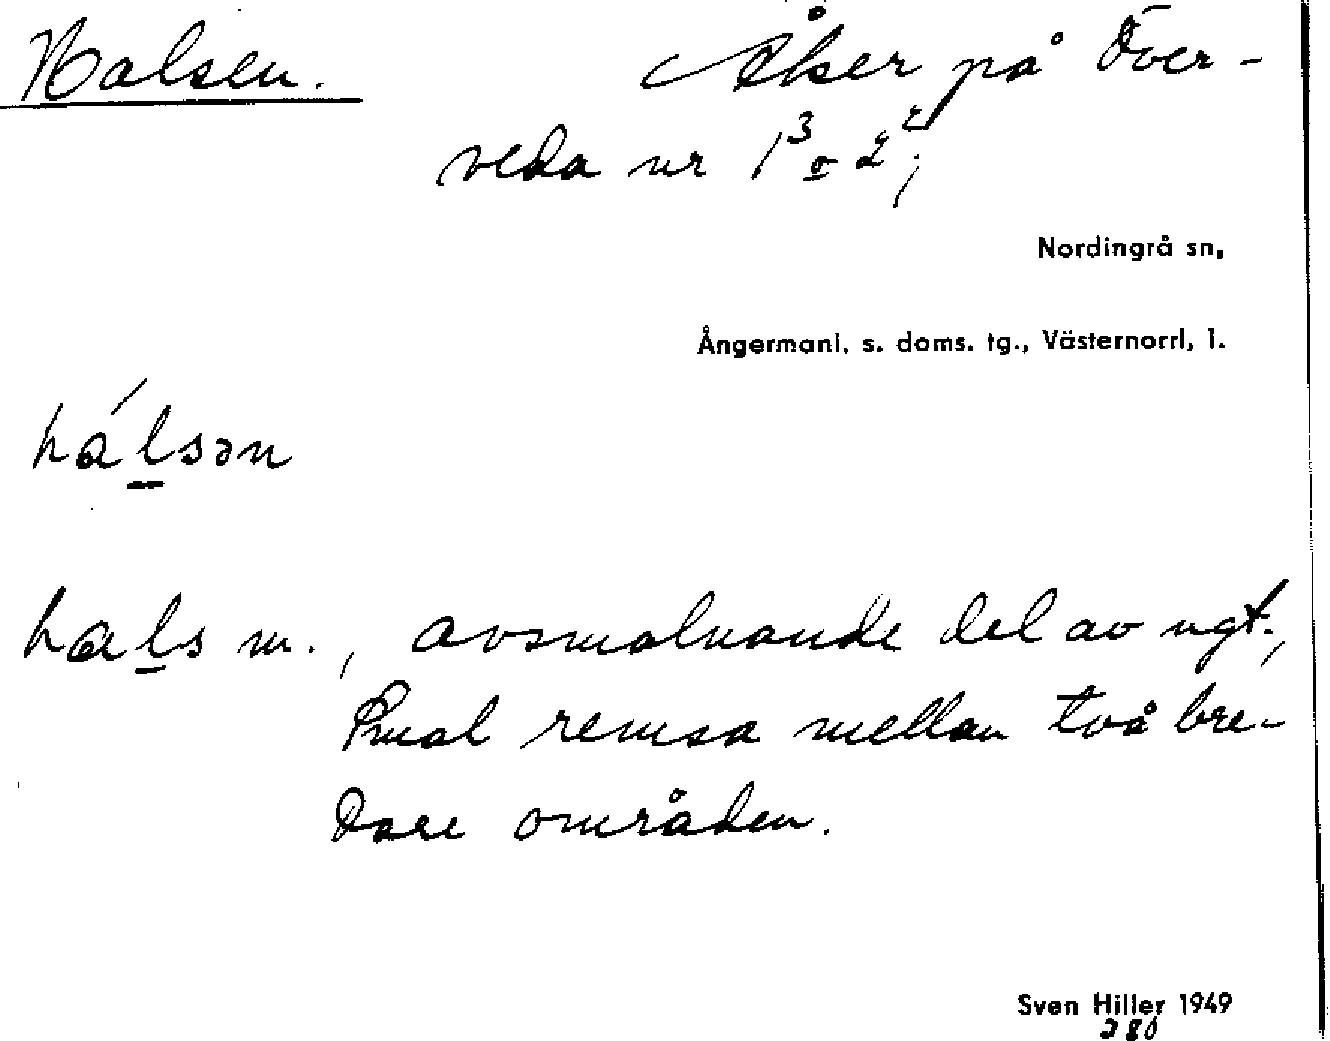 Halsen. Åker på Över-
veda nr 1³ o 2²;
Nordingrå sn,
Ångermanl. s. doms. tg., Västernorrl, l.
hálsən
hals m., avsmalnande del av ngt.,
smal remsa mellan två bre-
dare områden.
Sven Hiller 1949